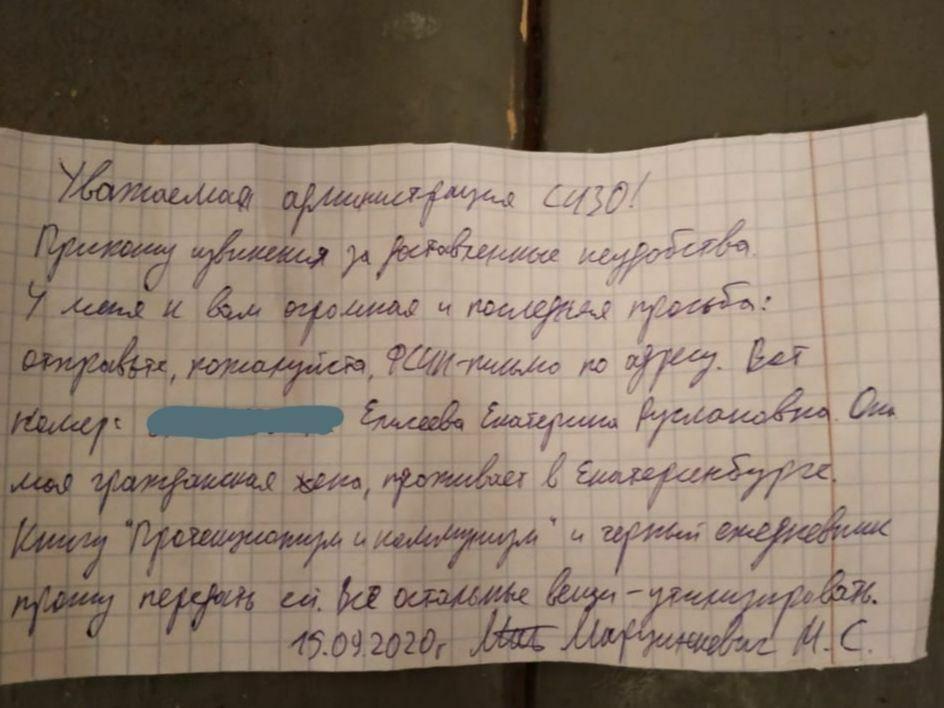 Уважаемая администрация СИЗО!
Приношу извинения за доставленные неудобства.
У меня к вам огромная и последняя просьба:
отправьте, пожалуйста, ФСИН-письмо по адресу. Вот
номер: Елисеева Екатерина Руслановна. Она
моя гражданская жена, проживает в Екатеринбурге.
Книгу "Протекционизм и коммунизм" и черный ежедневник
прошу передать ей. Всё остальные вещи - утилизировать.
15.09.2020г. Марцинкевич М. С.